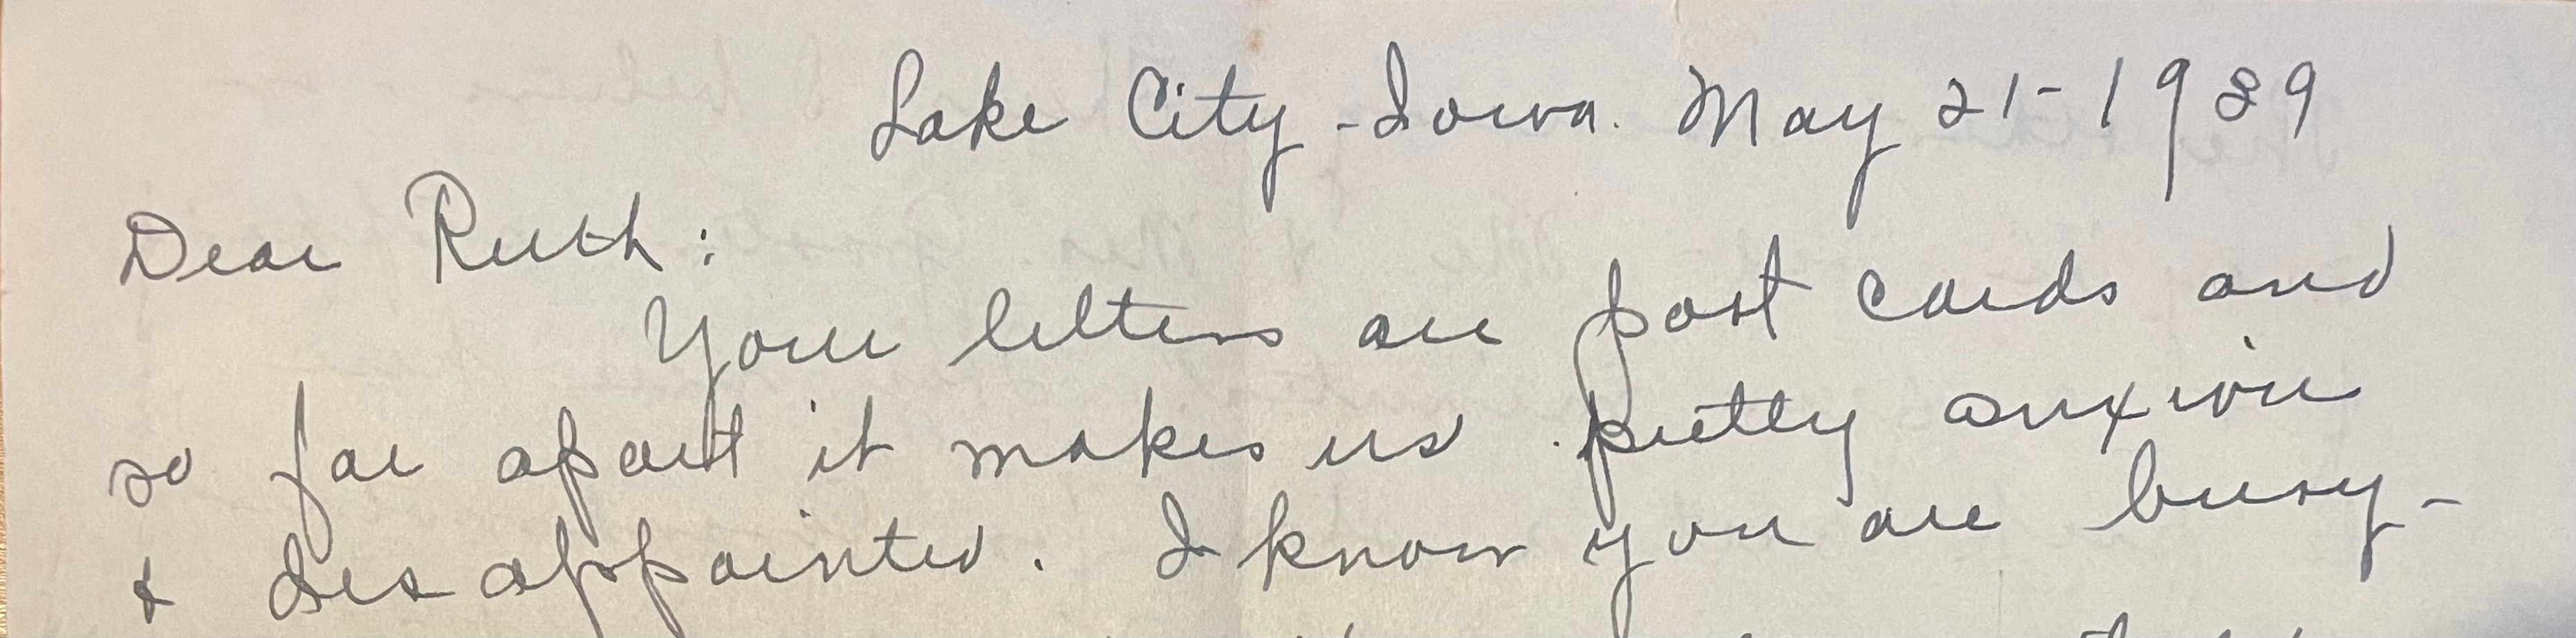 Lake City - Iowa. May 21 - 1939
Dear Ruth:
Your letters are post cards and
so far apart it makes us pretty anxious
& disappointed. I know you are busy -